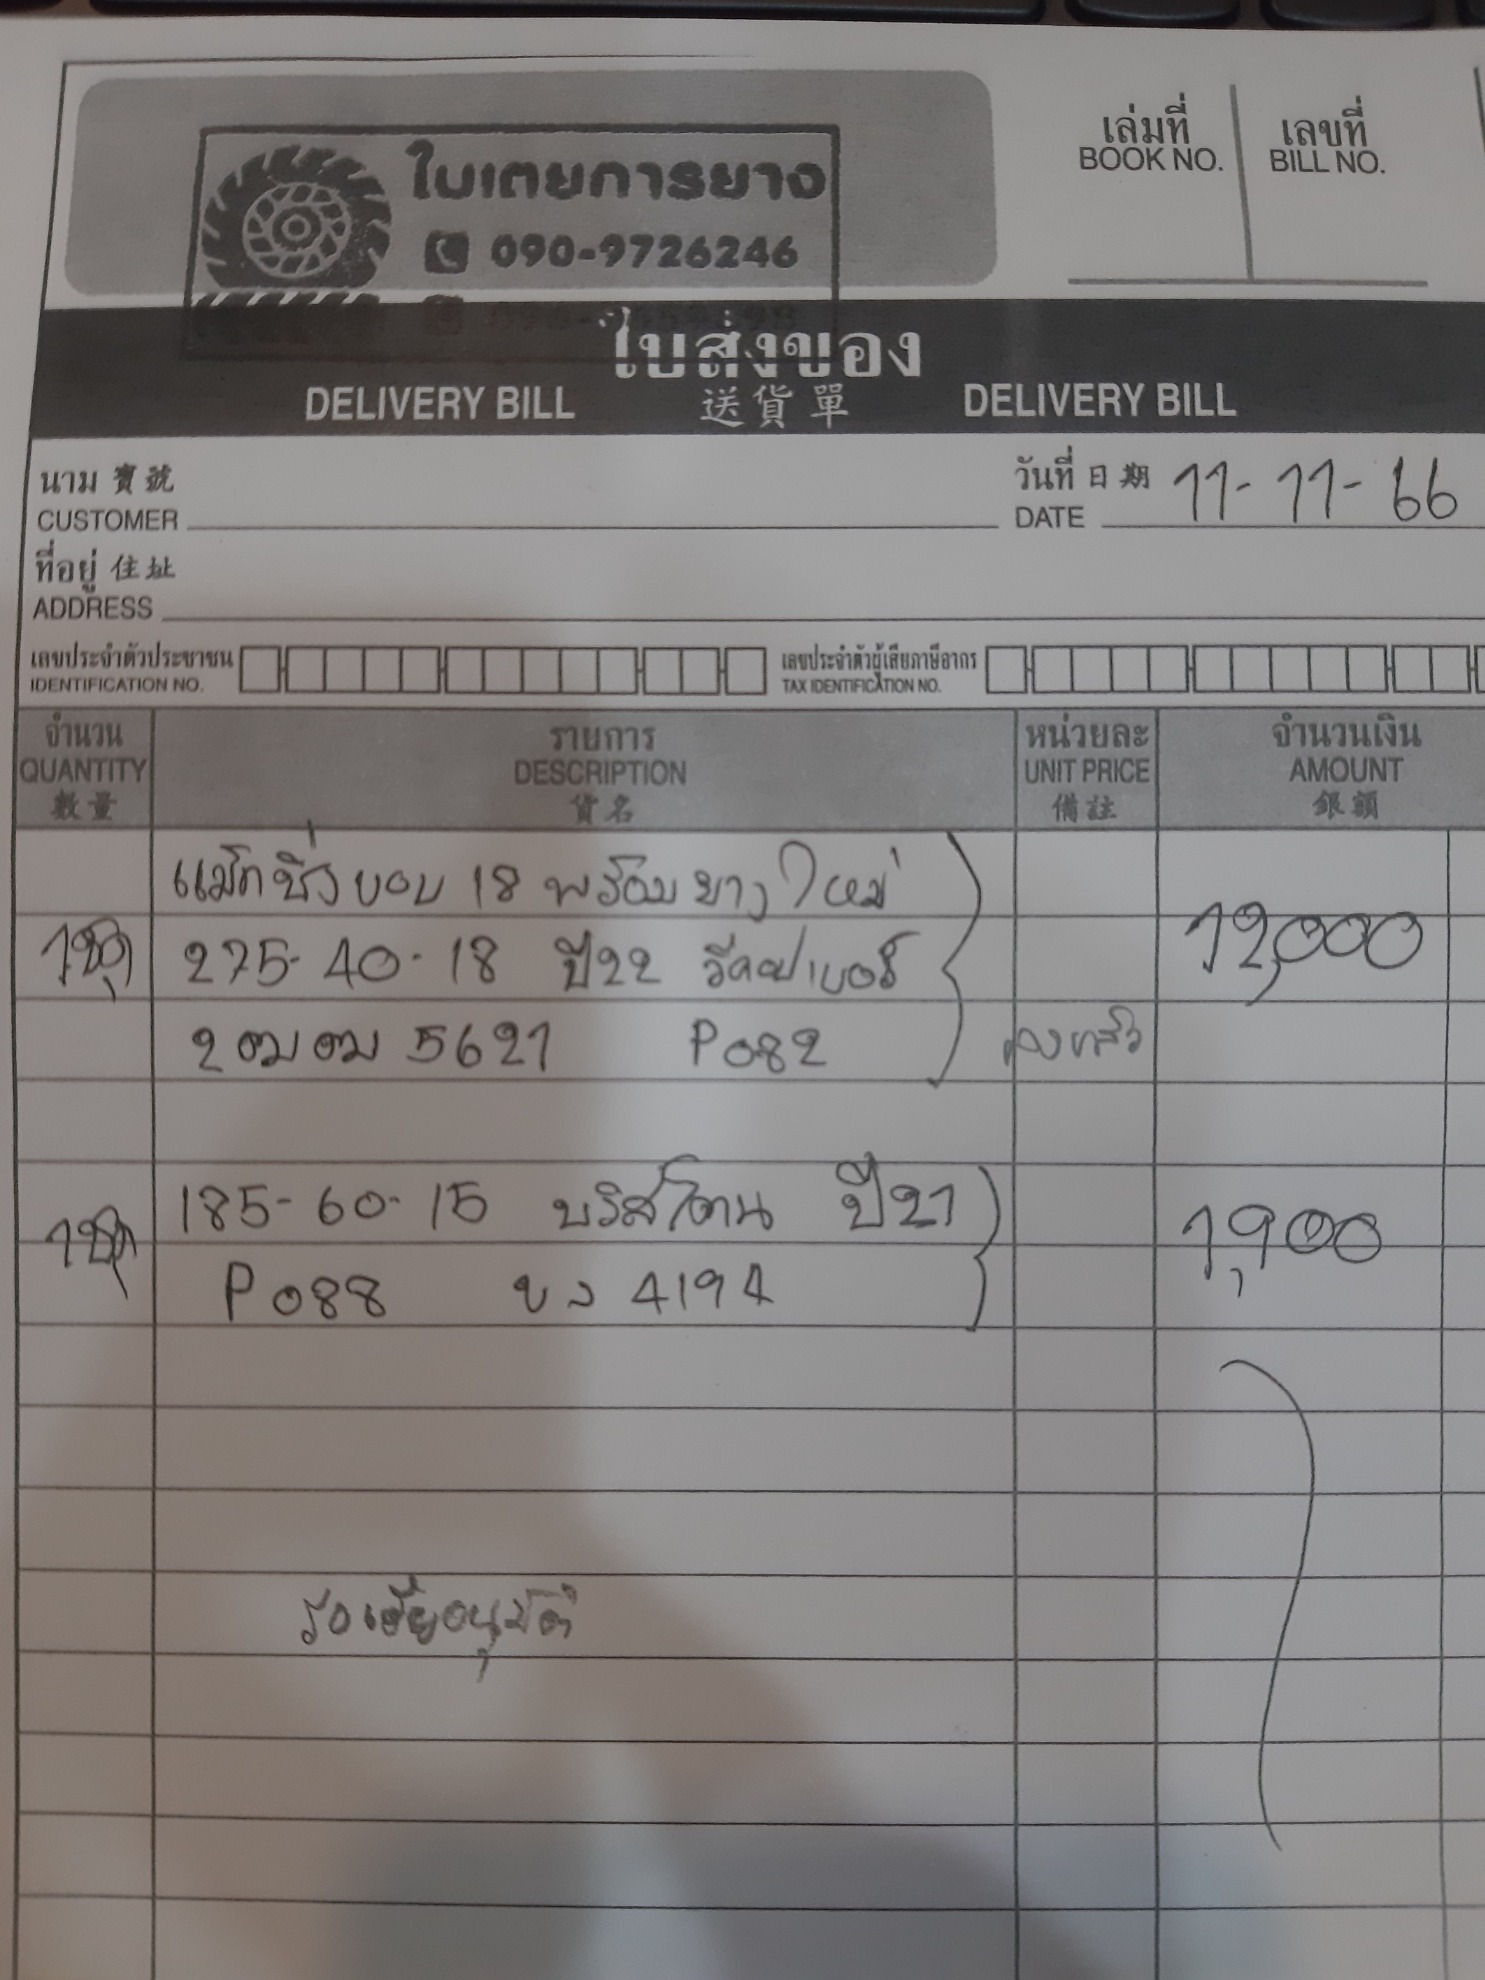 ใบเตยการยาง
090-9726246
เล่มที่
BOOK NO.
เลขที่
BILL NO.
ใบส่งของ
DELIVERY BILL 送貨單 DELIVERY BILL
นาม 寶號
CUSTOMER
วันที่ 日期 11-11-66
DATE
ที่อยู่ 住址
ADDRESS
เลขประจำตัวประชาชน
IDENTIFICATION NO.
เลขประจำตัวผู้เสียภาษีอากร
TAX IDENTIFICATION NO.
จำนวน รายการ หน่วยละ จำนวนเงิน
QUANTITY DESCRIPTION UNIT PRICE AMOUNT
數量 貨名 備註 銀額
แม็กซิ่งขอบ 18 พร้อมยางใหม่
1ชุด 275-40-18 ปี22 12,000
2 ฒฒ 5621 P082
1ชุด 185-60-15 บริสโตน ปี21 1,900
P088 ขง 4194
รอเฮียอนุมัติ